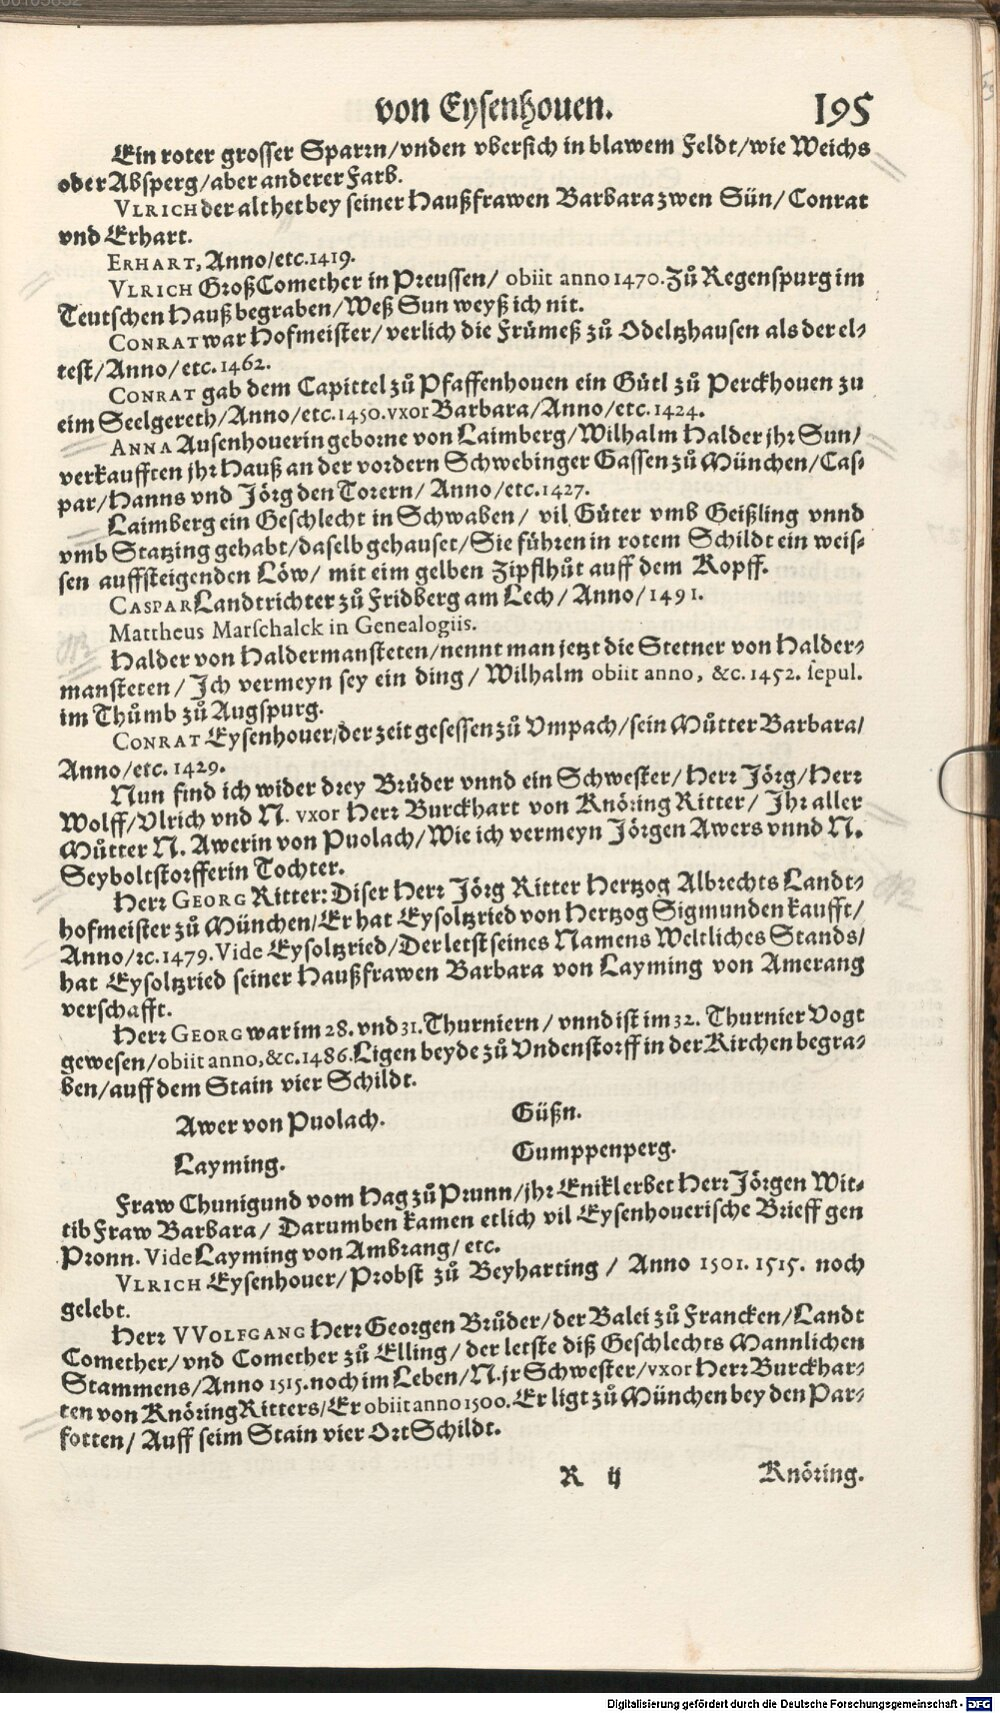 von Eysenhouen. 195
Ein roter grosser Sparrn/vnden vbersich in blawem Feldt/wie Weichs
oder Absperg/aber anderer Farb.
VLRICH der alt het bey seiner Haußfrawen Barbara zwen Sün/Conrat
vnd Erhart.
ERHART, Anno/etc.1419.
VLRICH GroßComether in Preussen/ obiit anno 1470. Zů Regenspurg im
Teutschen Hauß begraben/Weß Sun weyß ich nit.
CONRAT war Hofmeister/ verlich die Frůmeß zů Odeltzhausen als der el-
test/Anno/etc.1462.
CONRAT gab dem Capittel zů Pfaffenhouen ein Gütl zů Perckhouen zu
eim Seelgereth/Anno/etc.1450.vxor Barbara/Anno/etc.1424.
ANNA Ausenhouerin geborne von Laimberg/Wilhalm Halder jhr Sun/
verkaufften jhr Hauß an der vordern Schwebinger Gassen zů München/Cas-
par/Hanns vnd Jörg den Torern/ Anno/etc.1427.
Laimberg ein Geschlecht in Schwaben/ vil Güter vmb Geißling vnnd
vmb Statzing gehabt/daselb gehauset/Sie führen in rotem Schildt ein weis-
sen auffsteigenden Löw/ mit eim gelben Zipflhůt auff dem Kopff.
CASPAR Landtrichter zů Fridberg am Lech/ Anno/1491.
Mattheus Marschalck in Genealogiis.
Halder von Haldermansteten/nennt man jetzt die Stetner von Halder-
mansteten/ Ich vermeyn sey ein ding/ Wilhalm obiit anno, &c. 1452. sepul.
im Thůmb zů Augspurg.
CONRAT Eysenhouer/der zeit gesessen zů Vmpach/sein Můtter Barbara/
Anno/etc.1429.
Nun find ich wider drey Brůder vnnd ein Schwester/ Herr Jörg/Herr
Wolff/Vlrich vnd N. vxor Herr Burckhart von Knöring Ritter/ Ihr aller
Můtter N. Awerin von Puolach/Wie ich vermeyn Jörgen Awers vnnd N.
Seyboltstorfferin Tochter.
Herr GEORG Ritter: Diser Herr Jörg Ritter Hertzog Albrechts Landt-
hofmeister zů München/Er hat Eysoltzried von Hertzog Sigmunden kaufft/
Anno/ꝛc.1479.Vide Eysoltzried/Der letst seines Namens Weltliches Stands/
hat Eysoltzried seiner Haußfrawen Barbara von Layming von Amerang
verschafft.
Herr GEORG war im 28. vnd 31. Thurniern/ vnnd ist im 32. Thurnier Vogt
gewesen/obiit anno,&c.1486.Ligen beyde zů Vndenstorff in der Kirchen begra-
ben/auff dem Stain vier Schildt.
Awer von Puolach. Güßn.
Layming. Gumppenperg.
Fraw Chunigund vom Hag zů Prunn/jhr Enikl erbet Herr Jörgen Wit-
tib Fraw Barbara/ Darumben kamen etlich vil Eysenhouerische Brieff gen
Pronn. Vide Layming von Ambrang/etc.
VLRICH Eysenhouer/Probst zů Beyharting / Anno 1501. 1515. noch
gelebt.
Herr VVOLFGANG Herr Georgen Brůder/der Balei zů Francken/Landt
Comether/vnd Comether zů Elling/ der letste diß Geschlechts Mannlichen
Stammens/Anno 1515.noch im Leben/N.jr Schwester/vxor Herr Burckhar-
ten von Knöring Ritters/Er obiit anno 1500.Er ligt zů München bey den Par-
fotten/ Auff seim Stain vier Ort Schildt.
R ij Knöring.
Digitalisierung gefördert durch die Deutsche Forschungsgemeinschaft - DFG